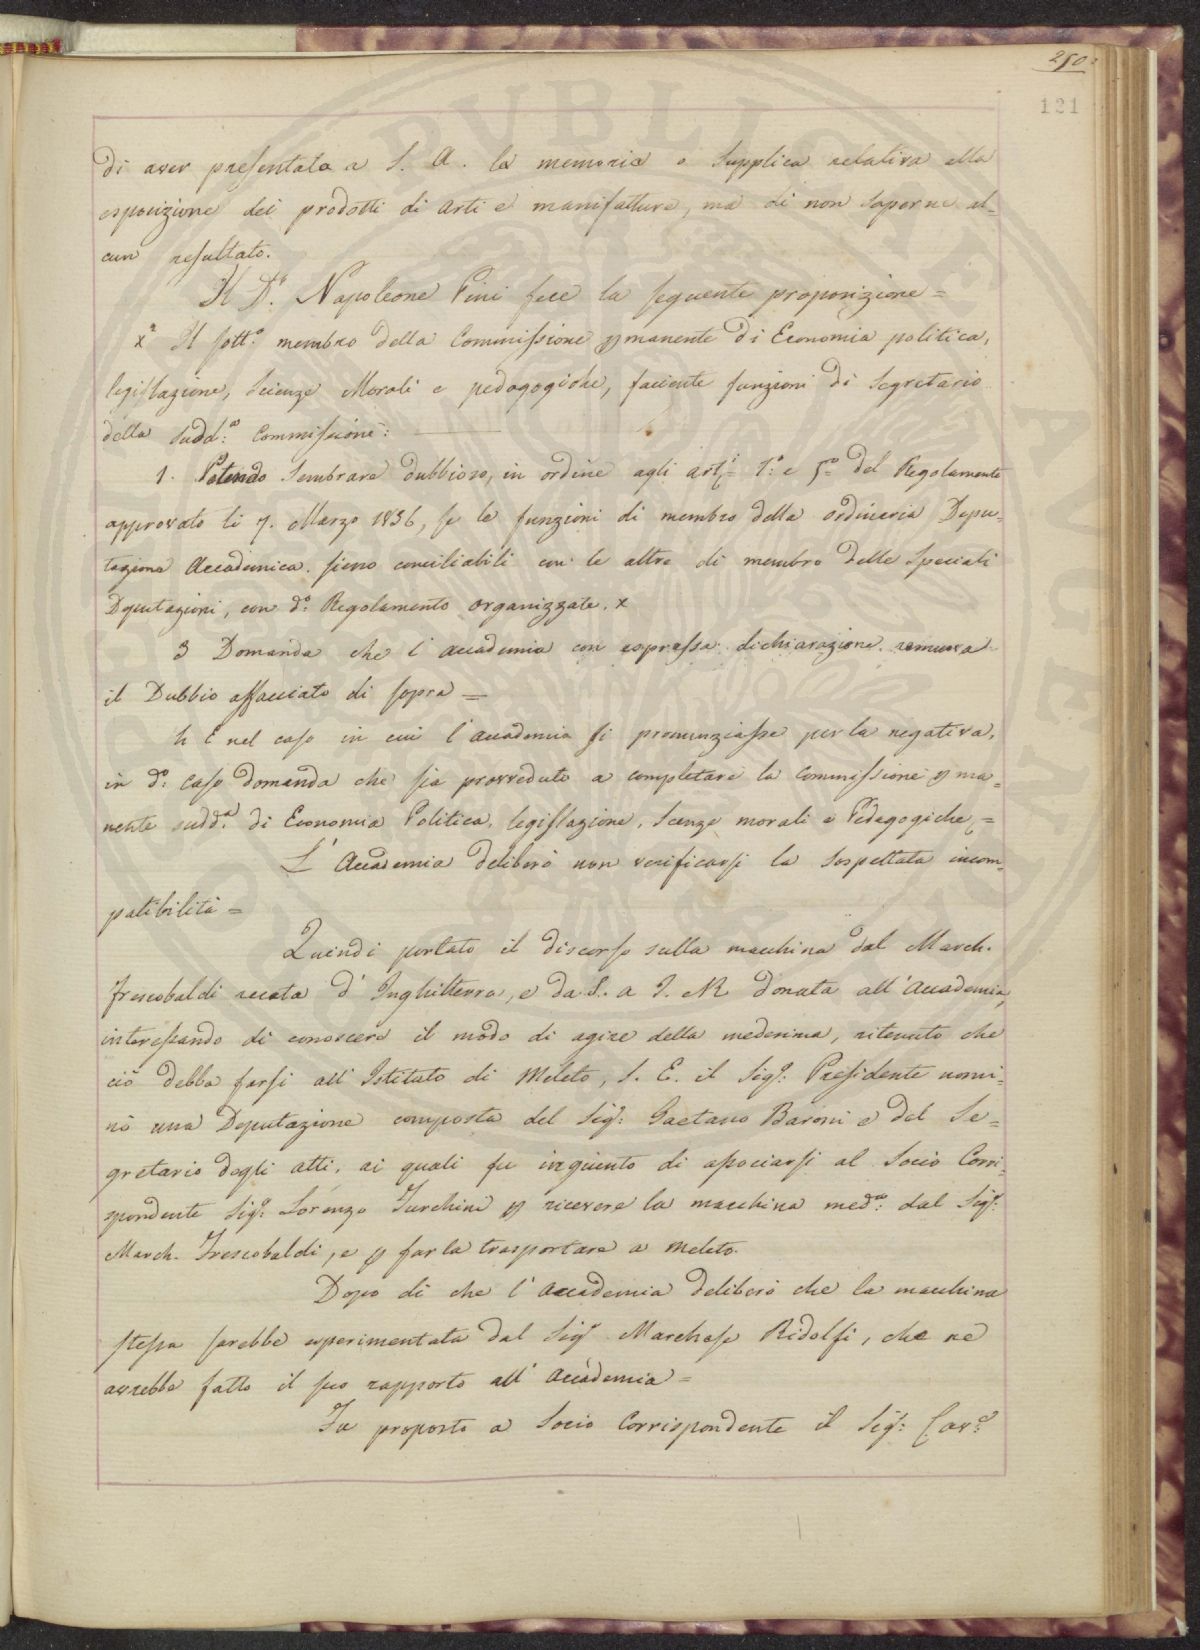 250.
121
di aver presentata a S. A. la memoria o Supplica relativa alla
esposizione dei prodotti di Arti e manifatture, ma di non saperne al-
cun resultato.
Il D.r Napoleone Pini fece la seguente proposizione =
x Il sott.o membro della Commissione p manente di Economia politica,
legislazione, Scienze Morali e pedagogiche, faciente funzioni di Segretario
della sudd.a Commissione:
1. Potendo Sembrare dubbioso, in ordine agli art.i 1.o e 5.o del Regolamento
approvato li 7. Marzo 1836, se le funzioni di membro della ordinaria Depu-
tazione Accademica. sieno conciliabili con le altre di membro delle Speciali
Deputazioni, con d.o Regolamento organizzate. x
3 Domanda che l'accademia con espressa dichiarazione. remuova
il Dubbio affacciato di sopra =
h E nel caso in cui l'accademia si pronunziasse per la negativa,
in d.o caso domanda che sia provveduto a completare la Commissione p ma-
nente sudd.a di Economia Politica, legislazione, Scenze morali e Pedagogiche =
L'Accademia deliberò non verificarsi la sospettata incom-
patibilità =
Quindi portato il discorso sulla macchina dal March.
Frescobaldi recata d'Inghilterra, e da S. a I. e R. donata all'Accademia,
interessando di conoscere il modo di agire della medesima, ritenuto che
ciò debba farsi all'Istituto di Meleto, S. E. il Sig.r Presidente nomi-
nò una Deputazione composta del Sig.r Gaetano Baroni e del Se-
gretario degli atti, ai quali fu ingiunto di associarsi al Socio Corri-
spondente Sig.r Lorenzo Turchini p ricevere la macchina med.a dal Sig.r
March. Frescobaldi, e p farla trasportare a Meleto.
Dopo di che l'accademia deliberò che la macchina
stessa sarebbe esperimentata dal Sig.r Marchese Ridolfi, che ne
avrebbe fatto il suo rapporto all'accademia =
Fu proposto a Socio Corrispondente il Sig.r Cav.e